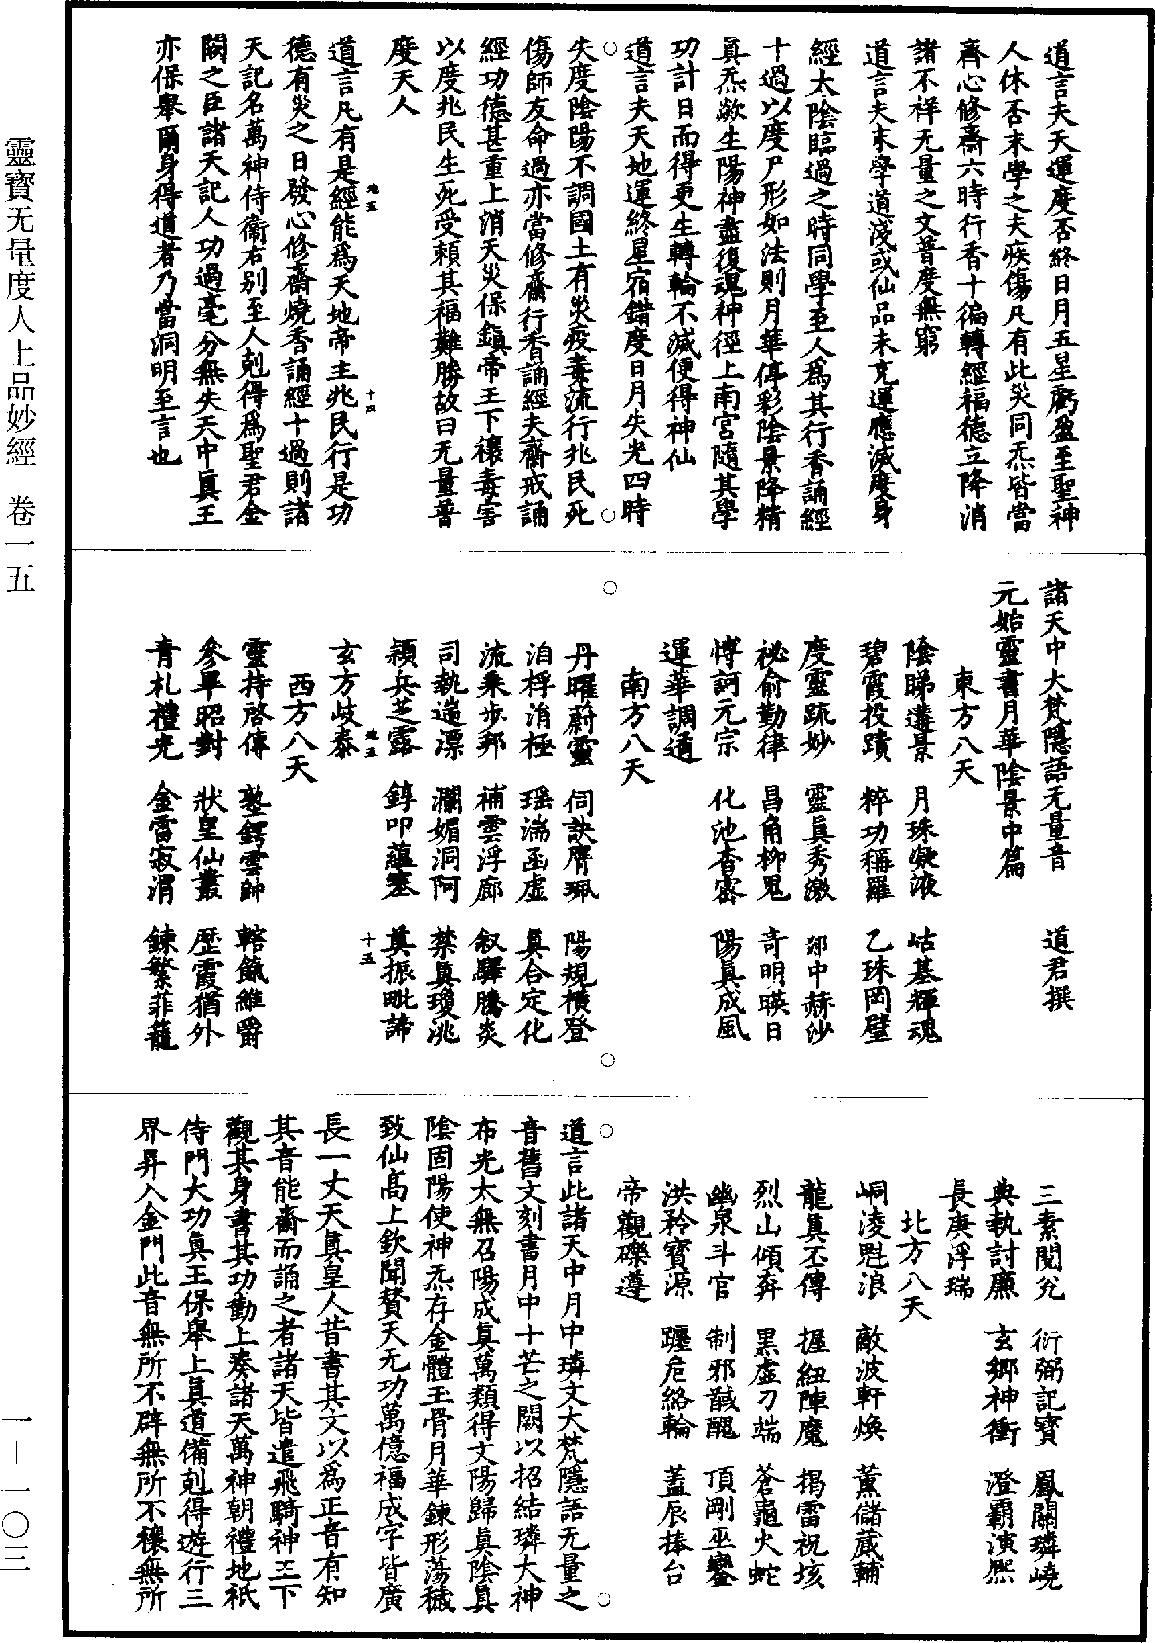 道言夫天運度否終日月五星虧盈至聖神
人休否末學之夫疾傷凡有此災同炁皆當
齊心修齋六時行香十徧轉經福德立降消
諸不祥无量之文普度無窮
道言夫末學道淺或仙品未充運應滅度身
經太陰臨過之時同學至人爲其行香誦經
十過以度尸形如法則月華停彩陰景降精
眞炁歘生陽神盡復魂神徑上南宮隨其學
功計日而得更生轉輪不滅便得神仙
道言夫天地運終星宿錯度日月失光四時
失度陰陽不調國土有災疫毒流行兆民死
傷師友命過亦當修齋行香誦經夫齋戒誦
經功德甚重上消天災保鎮帝王下禳毒害
以度兆民生死受賴其福難勝故曰无量普
度天人
道言凡有是經能爲天地帝主兆民行是功
德有災之日發心修齋燒香誦經十過則諸
天記名萬神侍衞右別至人剋得爲聖君金
闕之臣諸天記人功過毫分無失天中眞王
亦保舉爾身得道者乃當洞明至言也
地五
十四
諸天中大梵隱語无量音 道君撰
元始靈書月華陰景中篇
東方八天
陰睇遘景 月珠凝液 岵基輝魂
碧霞投蹟 粹功稱羅 乙珠岡壁
度靈疏妙 靈眞秀激 郍中赫沙
祕俞勤律 昌角柳鬼 奇明暎日
愽訶元宗 化池杳密 陽眞成風
運華調道
南方八天
丹曜蔚靈 伺訣膺珮 陽規橫登
洎桴消極 瑶湍函虛 眞合定化
流乘步邦 補雲浮廊 叙驛騰炎
司執遄漂 瀾媚洞阿 禁眞瓊洮
穎兵芝露 錞叩蘊塞 奠振毗諦
玄方岐泰
地五
十五
西方八天
靈持啓傳 墊鍔雲帥 轄籥維爵
參畢昭對 狀皇仙叢 歷霞猶外
青札禮光 金雷寂渭 鍊繁菲籠
三素閱兊 衍弼記寶 鳳關璘嶢
典執討廉 玄鄉神衝 澄霸演熙
長庚浮瑞
北方八天
峒淩魁浪 敵波軒煥 薰儲葴輔
龍眞丕傳 握紐陣魔 揭雷祝垓
烈山傾奔 黒虛刀端 蒼龜火蛇
幽泉斗官 制邪馘醜 頂剛巫鑾
洪矜寶源 躔危絡輪 蓋辰捧台
帝觀礫遵
道言此諸天中月中璘文大梵隱語无量之
音舊文刻書月中十芒之闕以招結璘大神
布光太無召陽成眞萬類得文陽歸眞陰眞
陰固陽使神炁存金體玉骨月華鍊形蕩穢
致仙高上欽聞賛天无功萬億福成字皆廣
長一丈天眞皇人昔書其文以爲正音有知
其音能齋而誦之者諸天皆遣飛騎神王下
觀其身書其功勳上奏諸天萬神朝禮地祇
侍門大功眞王保舉上眞道備剋得遊行三
界昇入金門此音無所不辟無所不禳無所
靈寶无量度人上品妙經 卷一五
一—一〇三